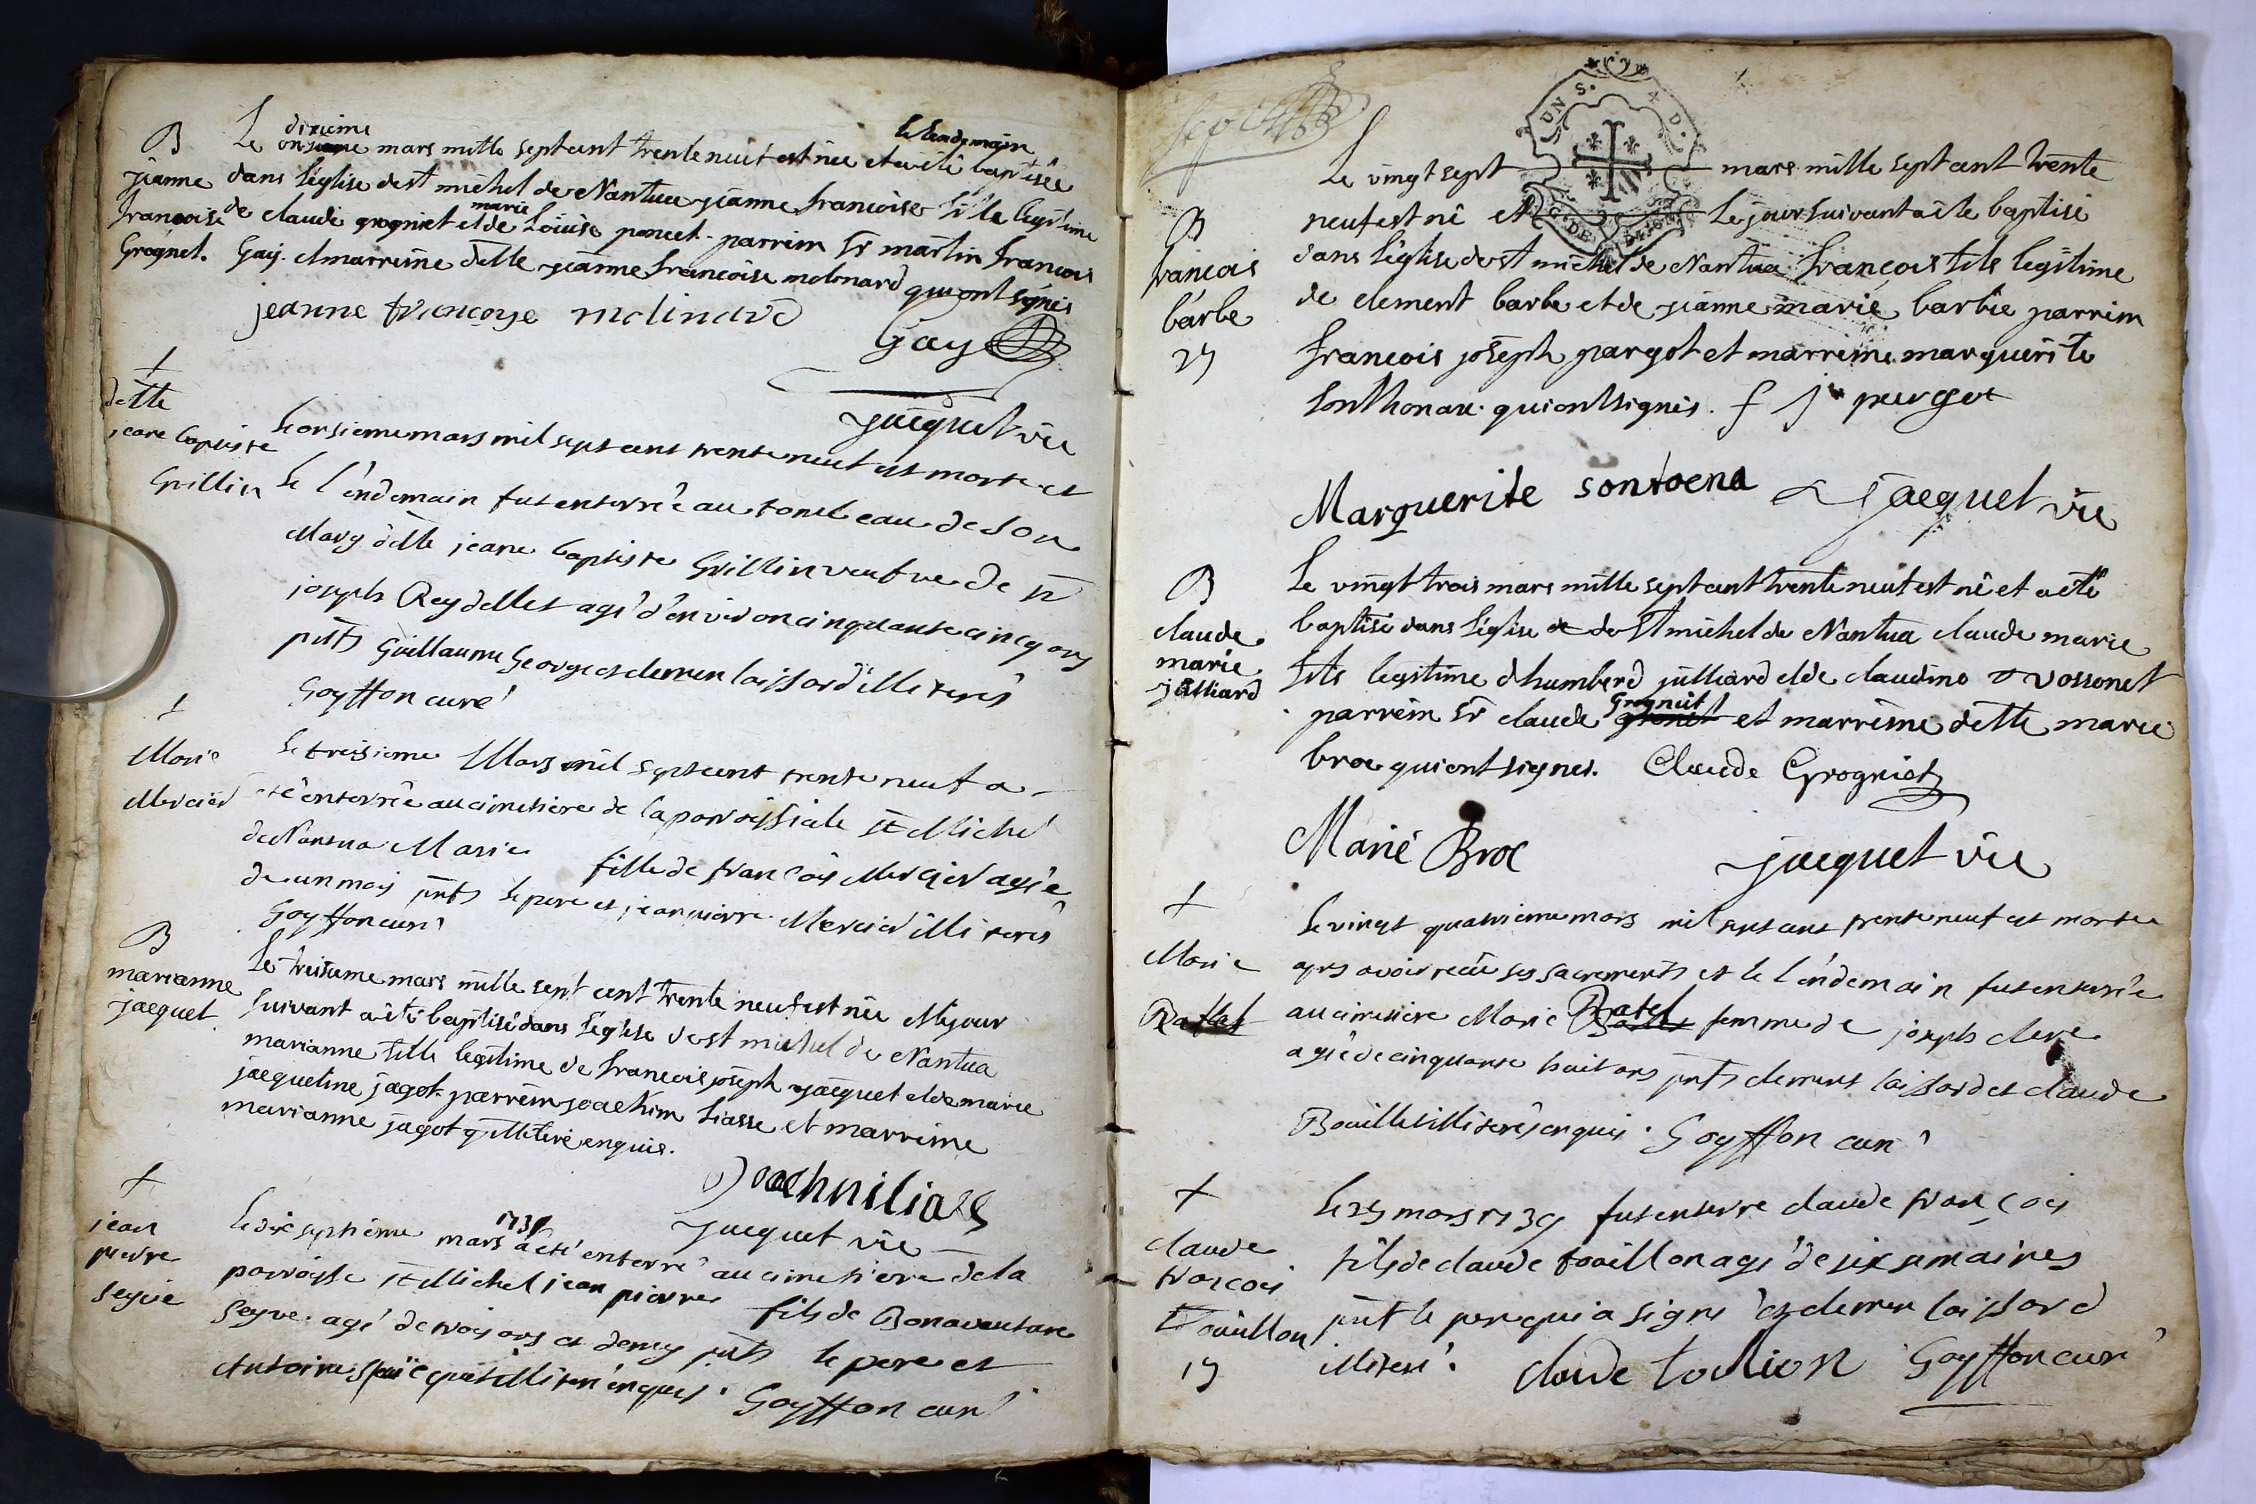 B
jeanne
francoise
Grognet.
dixieme
le lendemain
Le onsieme mars mille sept cent trente neuf est née et a été baptisée
dans l'église de st michel de Nantua jeanne francoise fille legitime
marie
de claude grogniet et de Loüise poncet. parrein Sr martin francois
Gay. et marreine delle jeanne francoise molinard qui ont signés
jeanne françoyse molinard
Gay
jacquet vic
+
delle
jeane baptiste
Grillin
Le onsieme mars mil sept cent trente neuf est morte et
le l'endemain fut enterrée au tombeau de son
Mary delle jeane baptiste Grillin veufve de Sr
joseph Reydellet agé d'environ cinquante cinq ans
pnts Guillaume George et clement loissard illiterés
Goyffon curé
+
Marie
Mercier
Le treisieme Mars mil sept cent trente neuf a
été enterrée au cimetiere de la parroissiale St Michel
de Nantua Marie fille de françois Mercier agée
de un mois pnts le pere et jean pierre Mercier illiterés
Goyffon curé
B
marianne
jacquet
Le treisieme mars mille sept cent trente neuf est née et le jour
suivant a été baptisé dans l'église de st michel de Nantua
marianne fille legitime de francois joseph jacquet et de marie
jacqueline jagot. parrein joachim liasse et marreine
marianne jagot q illiteré enquis.
joachn lias
jacquet vic
+
jean
pierre
seyve
1739
Le dix septieme mars a été enterré au cimetiere de la
parroisse St Michel jean pierre fils de Bonaventure
Seyve. agé de trois ans et demy pnts le pere et
Antoine illiterés enquis. Goyffon curé
B
francois
barbe
27
Le vingt sept mars mille sept cent trente
neuf est né et le jour suivant a été baptisé
dans l'église de st michel de Nantua francois fils legitime
de clement barbe et de jeanne marie barbie parrein
francois joseph pargot et marreine marguerite
sonthonax. qui ont signés. f j pargot
Marguerite sontoena jacquet vic
B
claude
marie
julliard
Le vingt trois mars mille sept cent trente neuf est né et a été
baptisé dans l'église de de St michel de Nantua claude marie
fils legitime d'humberd julliard et de claudine vossonet
Grognict
parrein Sr claude gronict et marreine delle marie
broc qui ont signés. Claude Grogniet
Marie Broc jacquet vic
+
Marie
Ratel
Le vingt quatrieme mars mil sept cent trente neuf est morte
aprs avoir receu ses sacrements et le l'endemain fut enterrée
au cimetiere Marie Ratel femme de joseph clerc
agée de cinquante huit ans pnts clement loissard et claude
Bouillet illiterés enquis. Goyffon curé
+
claude
françois
Touillon
17
Le 27 mars 1739 fut enterre claude françois
fils de claude touillon agé de six semaines
pnt le pere qui a signé et clement loissard
illiteré. claude toulion Goyffon curé